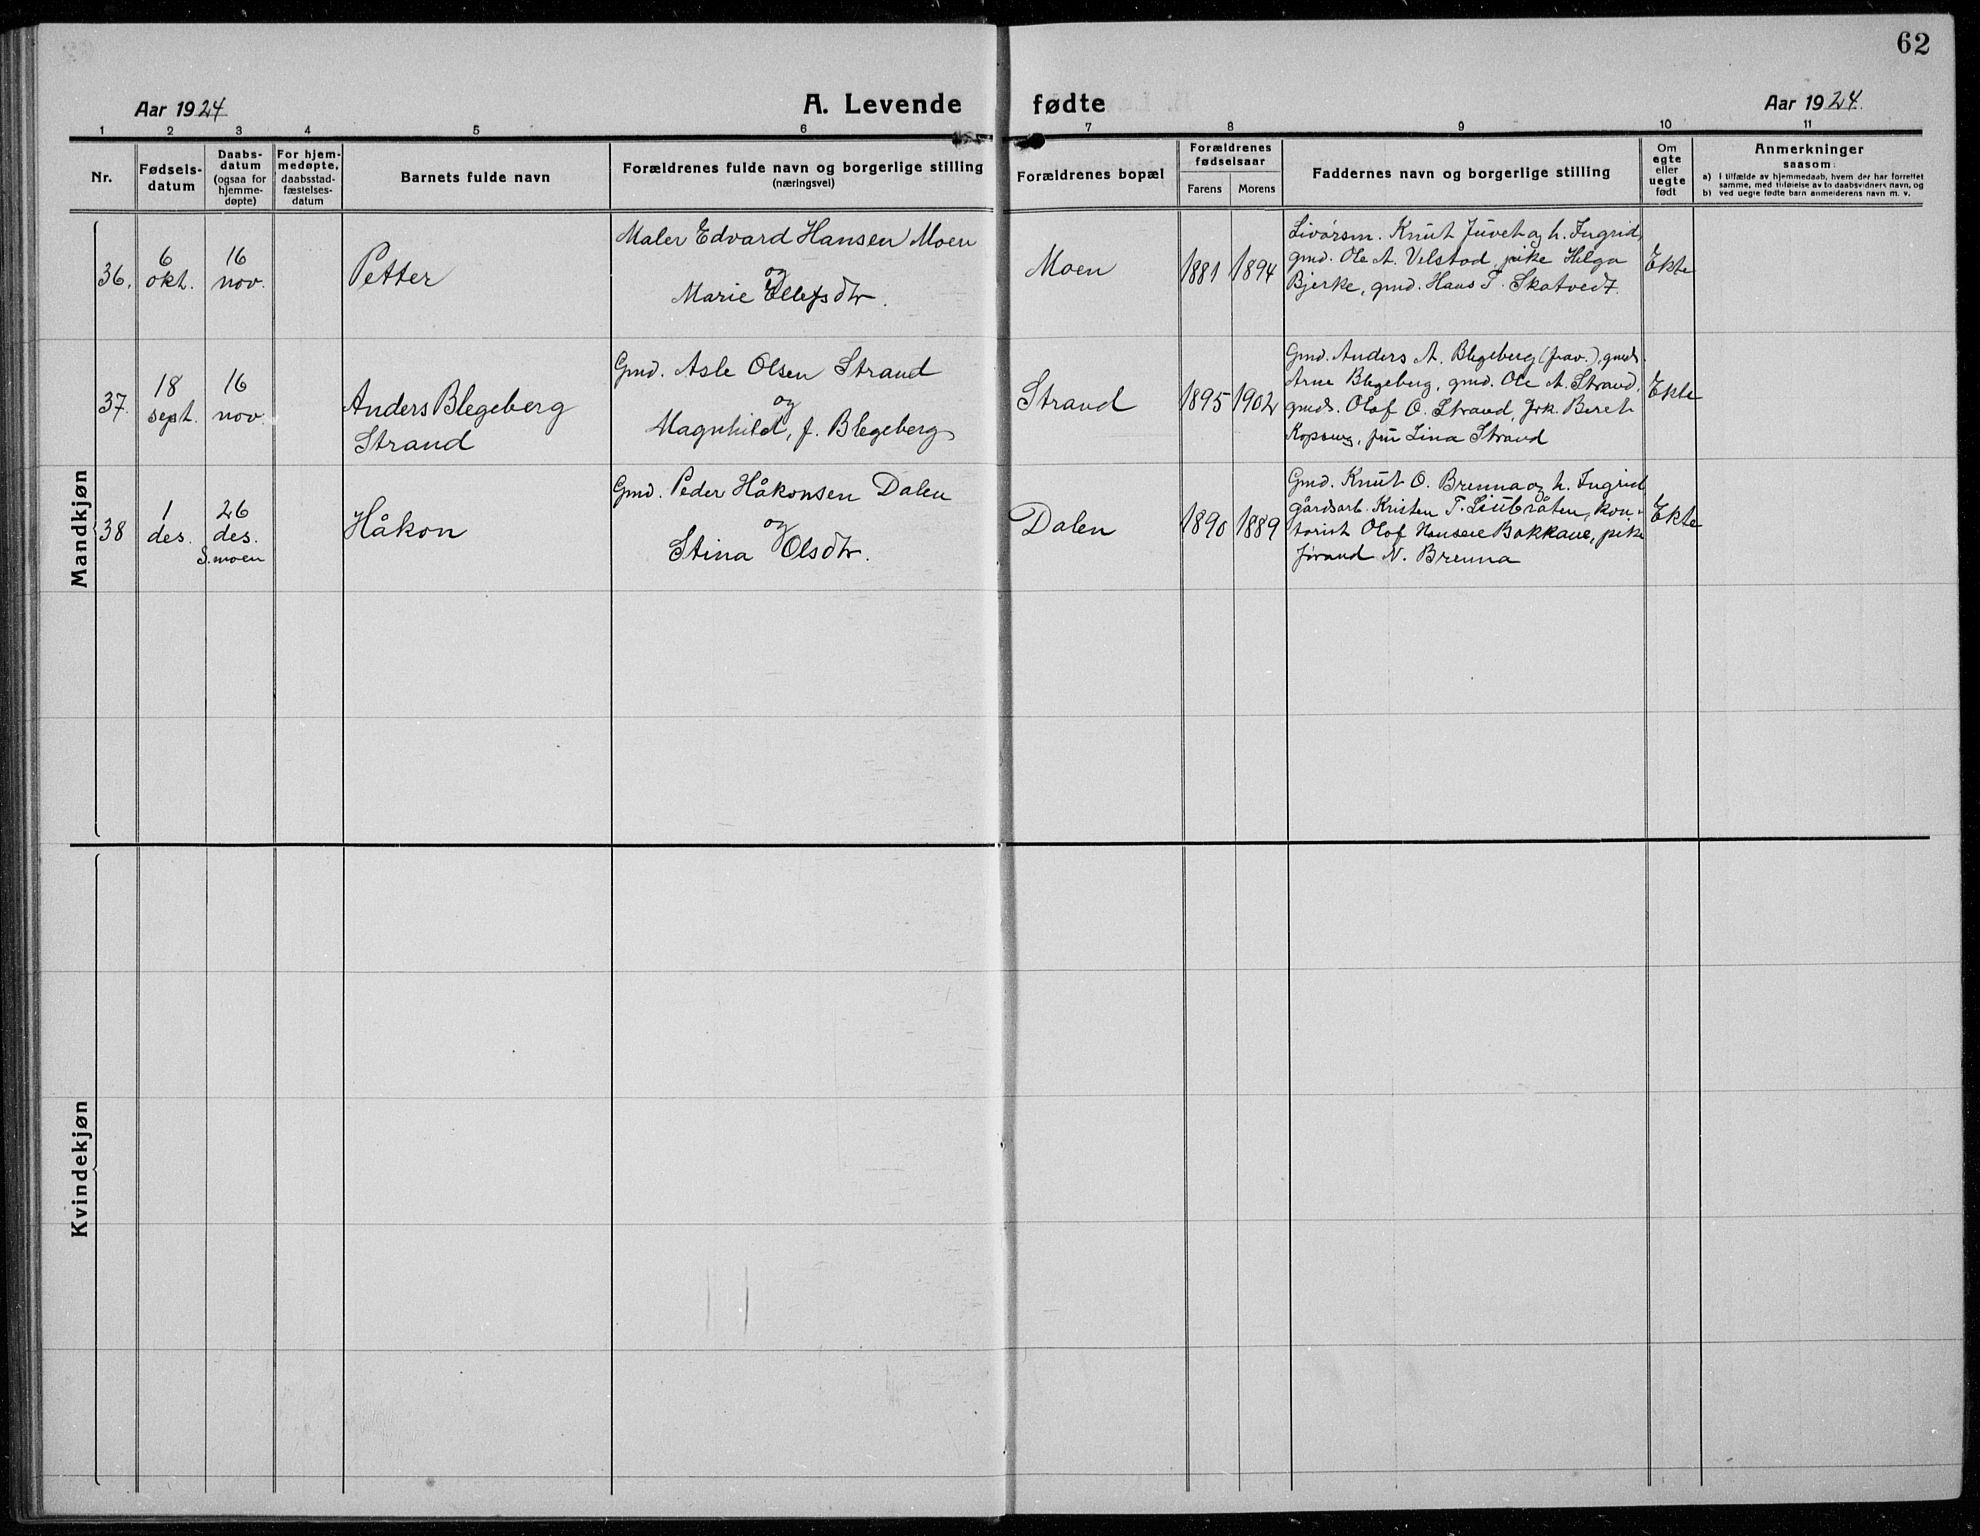 62
Aar 1924
A. Levende fødte
Aar 1924.
1 2 3 4 5 6 7 8 9 10 11
Nr.
Fødsels-
datum
Daabs-
datum
(ogsaa for
hjemme-
døpte)
For hjem-
medøpte,
daabsstad-
fæstelses-
datum
Barnets fulde navn
Forældrenes fulde navn og borgerlige stilling
(næringsvei)
Forældrenes bopæl
Forældrenes
fødselsaar
Farens Morens
Faddernes navn og borgerlige stilling
Om
egte
eller
uegte
født
Anmerkninger
saasom:
a) I tilfælde av hjemmedaab, hvem der har forrettet
samme, med tilføielse av to daabsvidners navn, og
b) ved uegte fødte barn anmelderens navn m. v.
Mandkjøn
36.
6
okt.
16
nov.
Petter
Maler Edvard Hansen Moen
og
Marie Ellefsdtr.
Moen
1881 1894
Knut Juvet og h. Ingrid,
gmd. Ole A. Velstad, pike Helga
Bjerke, gmd. Hans T. Skatvedt.
Ekte
37.
18
sept.
16
nov.
Anders Blegeberg
Strand
Gmd. Asle Olsen Strand
og
Magnhild, f. Blegeberg
Strand
1895 1902
Gmd. Anders A. Blegeberg (frav.), gmds.
Arne Blegeberg, gmd. Ole A. Strand,
gmds. Olaf O. Strand, frk. Beret
Kopseng, fru Lina Strand
Ekte
38
1
des.
26
des.
S.moen
Håkon
Gmd. Peder Håkonsen Dalen
og
Stina Olsdtr.
Dalen
1890 1889
Gmd. Knut O. Brenna og h. Ingrid
gårdsarb. Kristen T. Liubråten, kon-
torist Olaf Hansen Bakkane, pike
Jørand N. Brenna
Ekte
Kvindekjøn